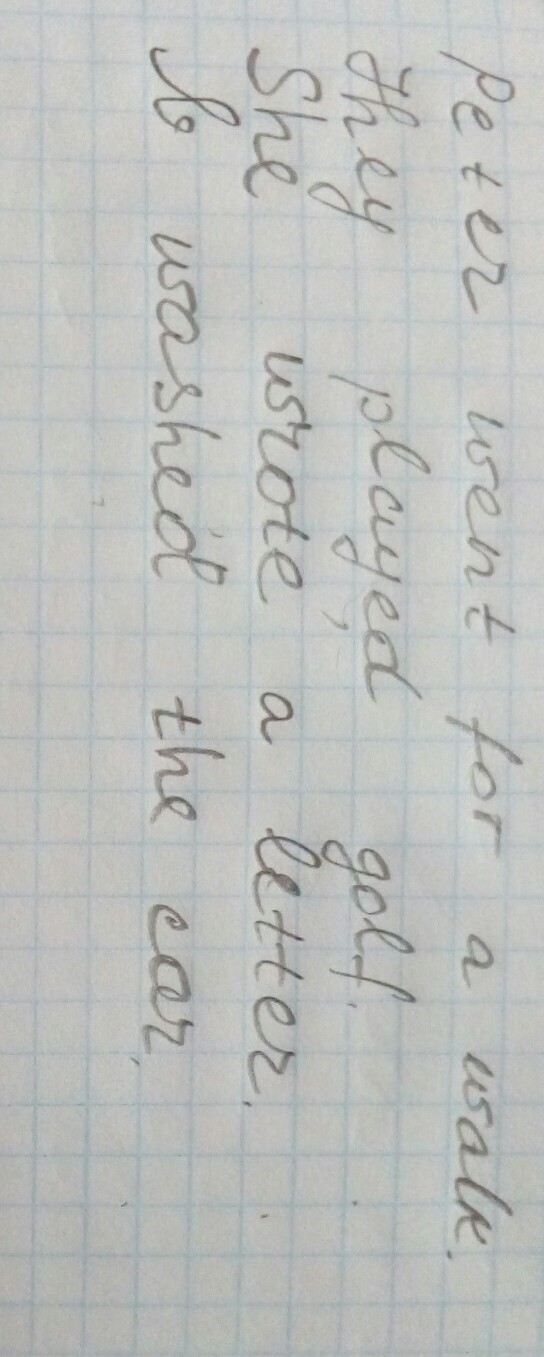 Peter went for a walk.
They played golf.
She wrote a letter.
I washed the car.